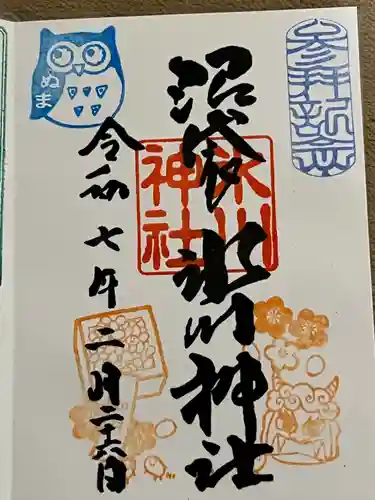 参拝記念
沼袋氷川神社
氷川神社
令和七年二月二十六日
ぬま